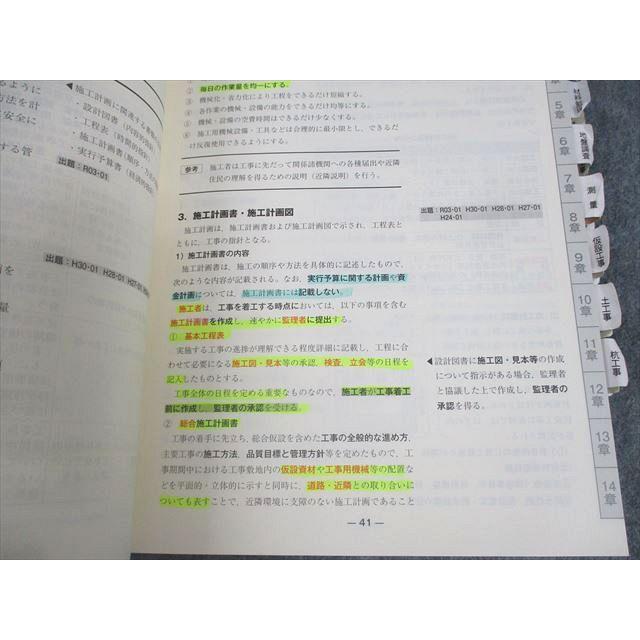 るように
方法を計
安全に
する管
施工計画に関連する
・設計図書（内容的
・工程表（時間的
・施工計画書（順序、方
・実行予算書（経済的
出題：R03・01
出題：H30・01 H28・01 H27・01
を
物量
② 毎日の作業量を均一にする。
③ 機械化・省力化により工程をできるだけ短縮する。
④ 各作業の機械・設備の能力をできるだけ均等にする。
⑤ 機械・設備の空費時間はできるだけ少なくする。
⑥ 施工用機械設備・工具などは合理的に最小限とし、できるだ
け反復使用できるようにする。
参考 施工者は工事に先だって関係諸機関への各種届出や近隣
住民の理解を得るための説明（近隣説明）を行う。
3．施工計画書・施工計画図
施工計画は、施工計画書および施工計画図で示され、工程表と
ともに、工事の指針となる。
1）施工計画書の内容
施工計画書は、施工の順序や方法を具体的に記述したもので、
次のような内容が記載される。なお、実行予算に関する計画や資
金計画については、施工計画書には記載しない。
施工者は、工事を着工する時点においては、以下の事項を含む
施工計画書を作成し、速やかに監理者に提出する。
① 基本工程表
実施する工事の進捗が理解できる程度詳細に記載し、工程に合
わせて必要になる施工図・見本等の承認、検査、立会等の日程を
記入したものとする。
工事全体の日程を定める重要なもので、施工者が工事着工
前に作成し、監理者の承認を受ける。
② 総合施工計画書
工事の着手に先立ち、総合仮設を含めた工事の全般的な進め方、
主要工事の施工方法、品質目標と管理方針等を定めたもので、工
事期間中における工事敷地内の仮設資材や工事用機械等の配置な
どを平面的・立体的に示すと同時に、道路・近隣との取り合いに
ついても表すことで、近隣環境に支障のない施工計画であること
— 41 —
出題：R03・01 H30・01 H28・01 H27・01
H24・01
◀設計図書に施工図・見本等の作成
について指示がある場合、監理者
と協議した上で作成し、監理者の
承認を得る。
章
5章
6章
7章
8章
9章
10章
11章
12章
13章
14章
地盤調査
測量
仮設工事
土工事
杭工事